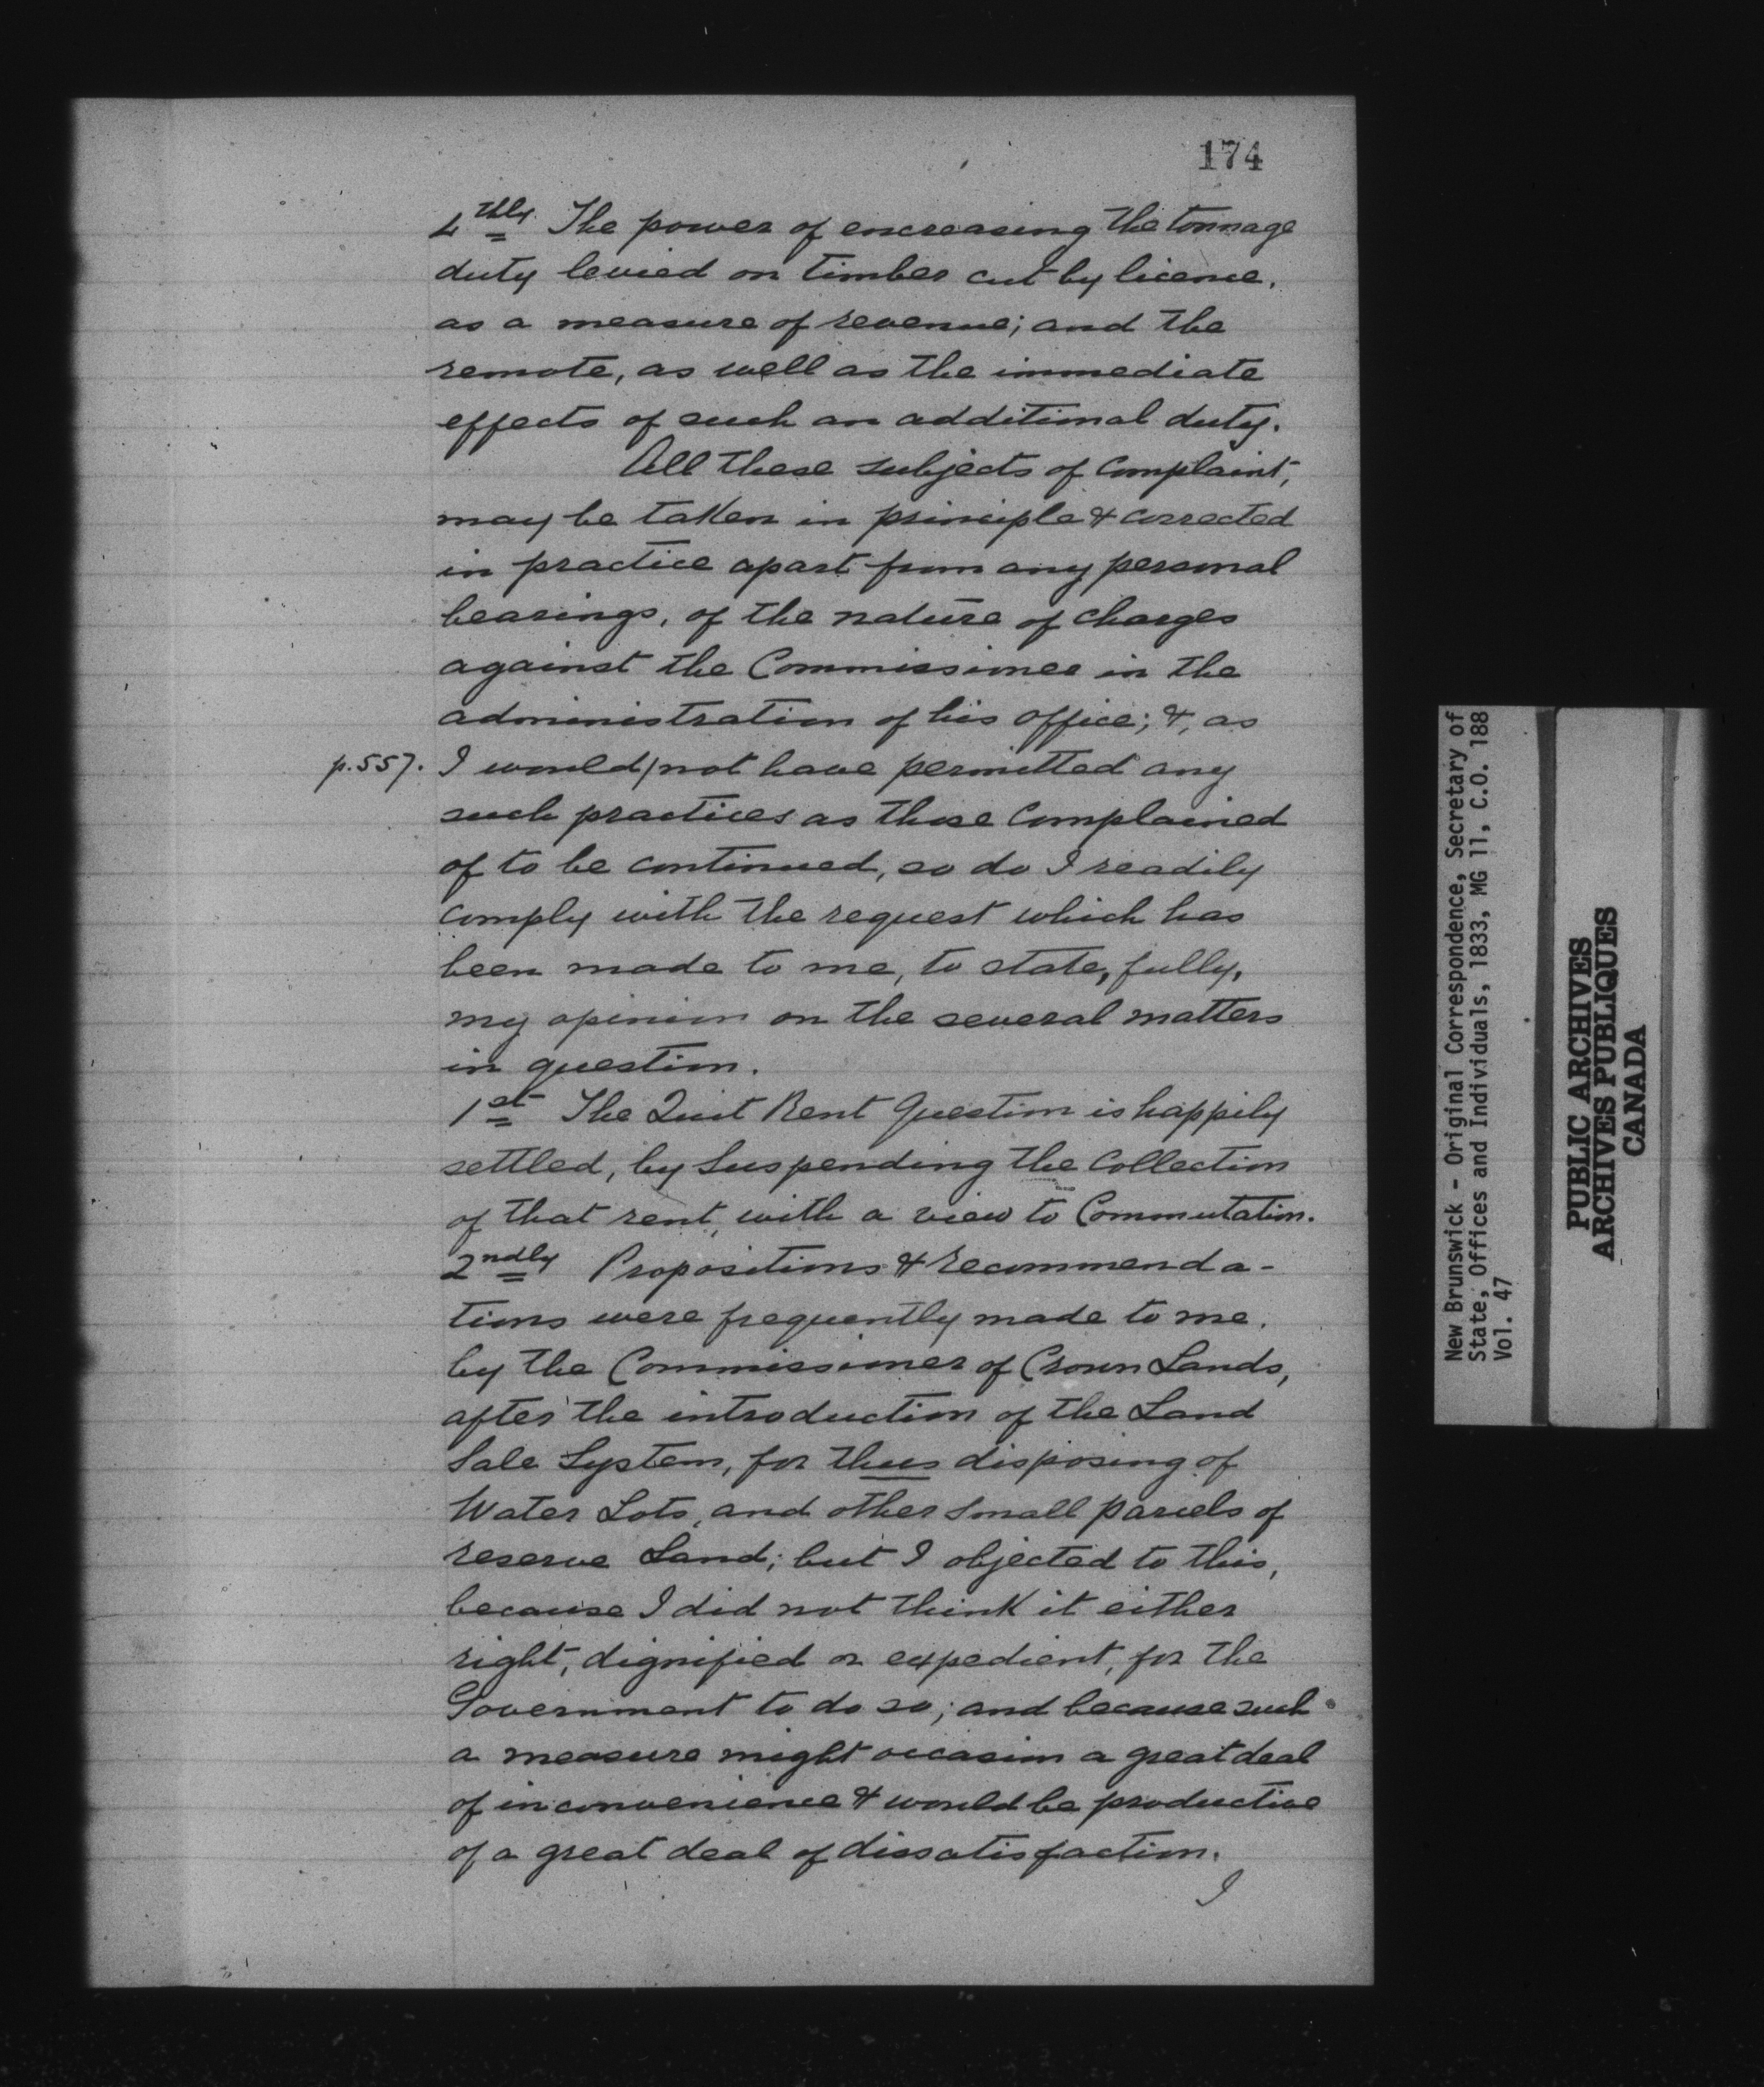 174
4thly The power of encreasing the tonnage
duty levied on timber cut by licence,
as a measure of revenue; and the
remote, as well as the immediate
effects of such an additional duty.
All these subjects of complaint,
may be taken in principle & corrected
in practice apart from any personal
bearings, of the nature of charges
against the Commissioner in the
administration of his office; &, as
p.557. I would/not have permitted any
such practices as those complained
of to be continued, so do I readily
comply with the request which has
been made to me, to state, fully,
my opinion on the several matters
in question.
1st The Quit Rent Question is happily
settled, by Suspending the Collection
of that rent, with a view to Commutation.
2ndly Propositions & recommenda-
tions were frequently made to me,
by the Commissioner of Crown Lands,
after the introduction of the Land
Sale System, for thus disposing of
Water Lots, and other small parcels of
reserve Land; but I objected to this,
because I did not think it either
right, dignified or expedient, for the
Government to do so; and because such
a measure might occasion a great deal
of inconvenience & would be productive
of a great deal of dissatisfaction.
I
New Brunswick - Original Correspondence, Secretary of
State, Offices and Individuals, 1833, MG 11, C.O. 188
Vol. 47
PUBLIC ARCHIVES
ARCHIVES PUBLIQUES
CANADA